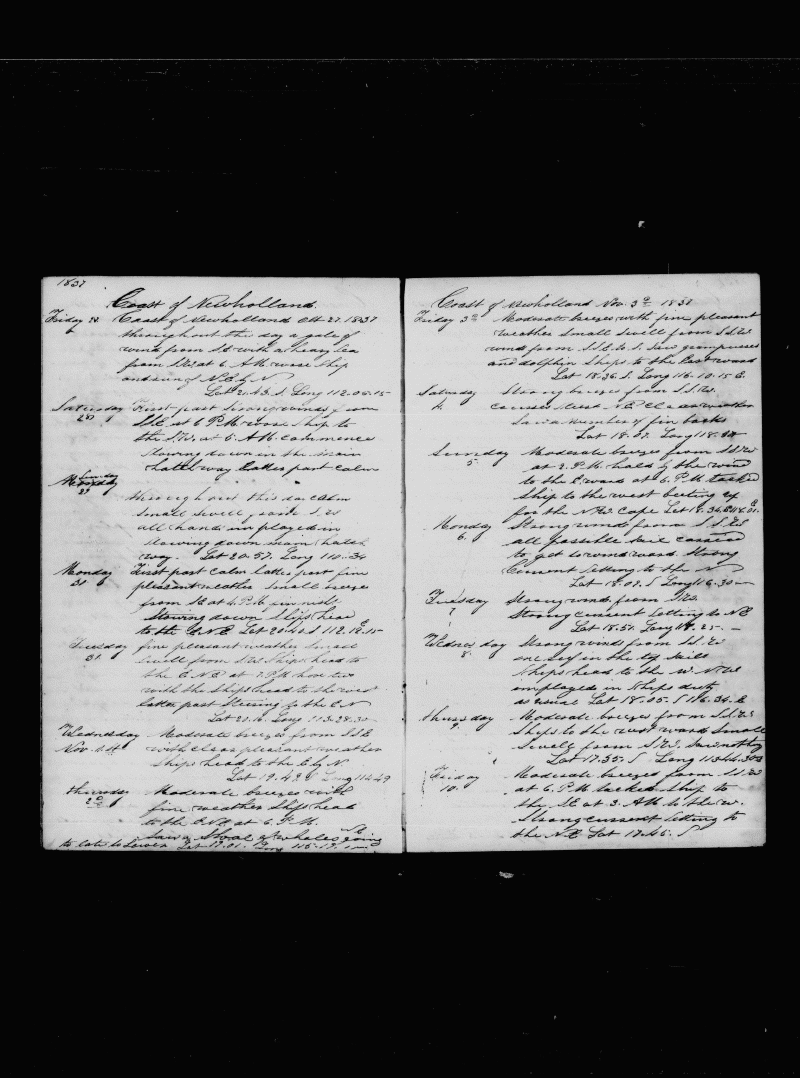 1837
Coast of Newholland.
Friday 28 Coast of Newholland Oct 27 1837
throughout the day a gale of
wind from SE with a heavy Sea
from SW at 6 A.M. wore Ship
and N E by N
Lat 20.43 S Long 112.06.15
Saturday First part strong winds from
28 SSE at 6 P.M wore ship to
the S.W. at 5. A M commence
Stowing down in the main
hatchway latter part calm
Sunday
29 throughout this day Calm
Small Swell from S W
all hands imployed in
stowing down main hatch
way. Lat 20.57. Long 110.34
Monday First part Calm latter part fine
30 pleasant weather Small breezes
from SE at 4. P.M
Stowing down Ships head
to the E N E Lat 20.40.S 112.12.15
Tuesday fine pleasant weather Small
31 Swell from SW Ships head to
the E N E at 7. P.M hove too
with the Ships head to the west
latter part Steering to the E N
Lat 20.16. Long 113.28.30
Wednesday Moderate breezes from SSE
Nov. 1st with clear pleasant weather
Ships head to the E by N
Lat 19.42 S Long 114.49
Thursday Moderate breezes with
2d fine weather Ships head
to the ENE at 6. P.M.
Saw a Shoal of whales going NE
to late to Lower Lat 19.01. Long 115.17.
Coast of Newholland Nov. 3d 1837
Friday 3d Moderate breezes with fine pleasant
weather Small Swell from SSW
wind from SSE to S. Saw grampuses
and dolphin Ships to the Eastward
Lat 18.36 S. Long 116.10.15 E
Saturday Strong breezes from SSW.
4. Course West N E Clear weather
Saw a number of fin backs
Lat 18.07. Long 118.
Sunday Moderate breezes from SSW
5 at 2. P.M. hauld by the wind
to the E ward at 6. P.M tacked
Ship to the west beeting up
for the N W Cape Lat 18.34.
Monday Strong winds from S.S.W
6. all possible Sail carried
to get to windward. Strong
Current Setting to the N
Lat 18.07. S Long 116.30
Tuesday Strong winds from SW
7 Strong current Setting to N E
Lat 18.51. Long 118.25.
Wednesday Strong winds from SSW
8. one reef in the top Sails
Ships head to the W N W
employed in Ships duty
as usual Lat 18.05.S 116.34. E
Thursday Moderate breezes from S.S.W
9. Ships to the westward Small
Swell from S W. Saw nothing
Lat 17.35. S Long 113.
Friday Moderate breezes from SSW
10. at 6. P.M tacked Ship to
the SE at 3. A M to the w.
Strong current Setting to
the N.E Lat 17.45. S